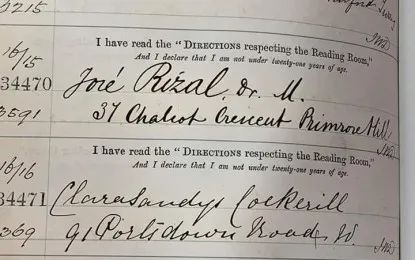 2215
I have read the "DIRECTIONS respecting the Reading Room,"
And I declare that I am not under twenty-one years of age.
16/15
34470
José Rizal, Dr. M.
3591
37 Chalcot Crescent Primrose Hill
I have read the "DIRECTIONS respecting the Reading Room,"
And I declare that I am not under twenty-one years of age.
16/16
34471
Clara Sandys Cockerill
369
91 Portsdown Road W.